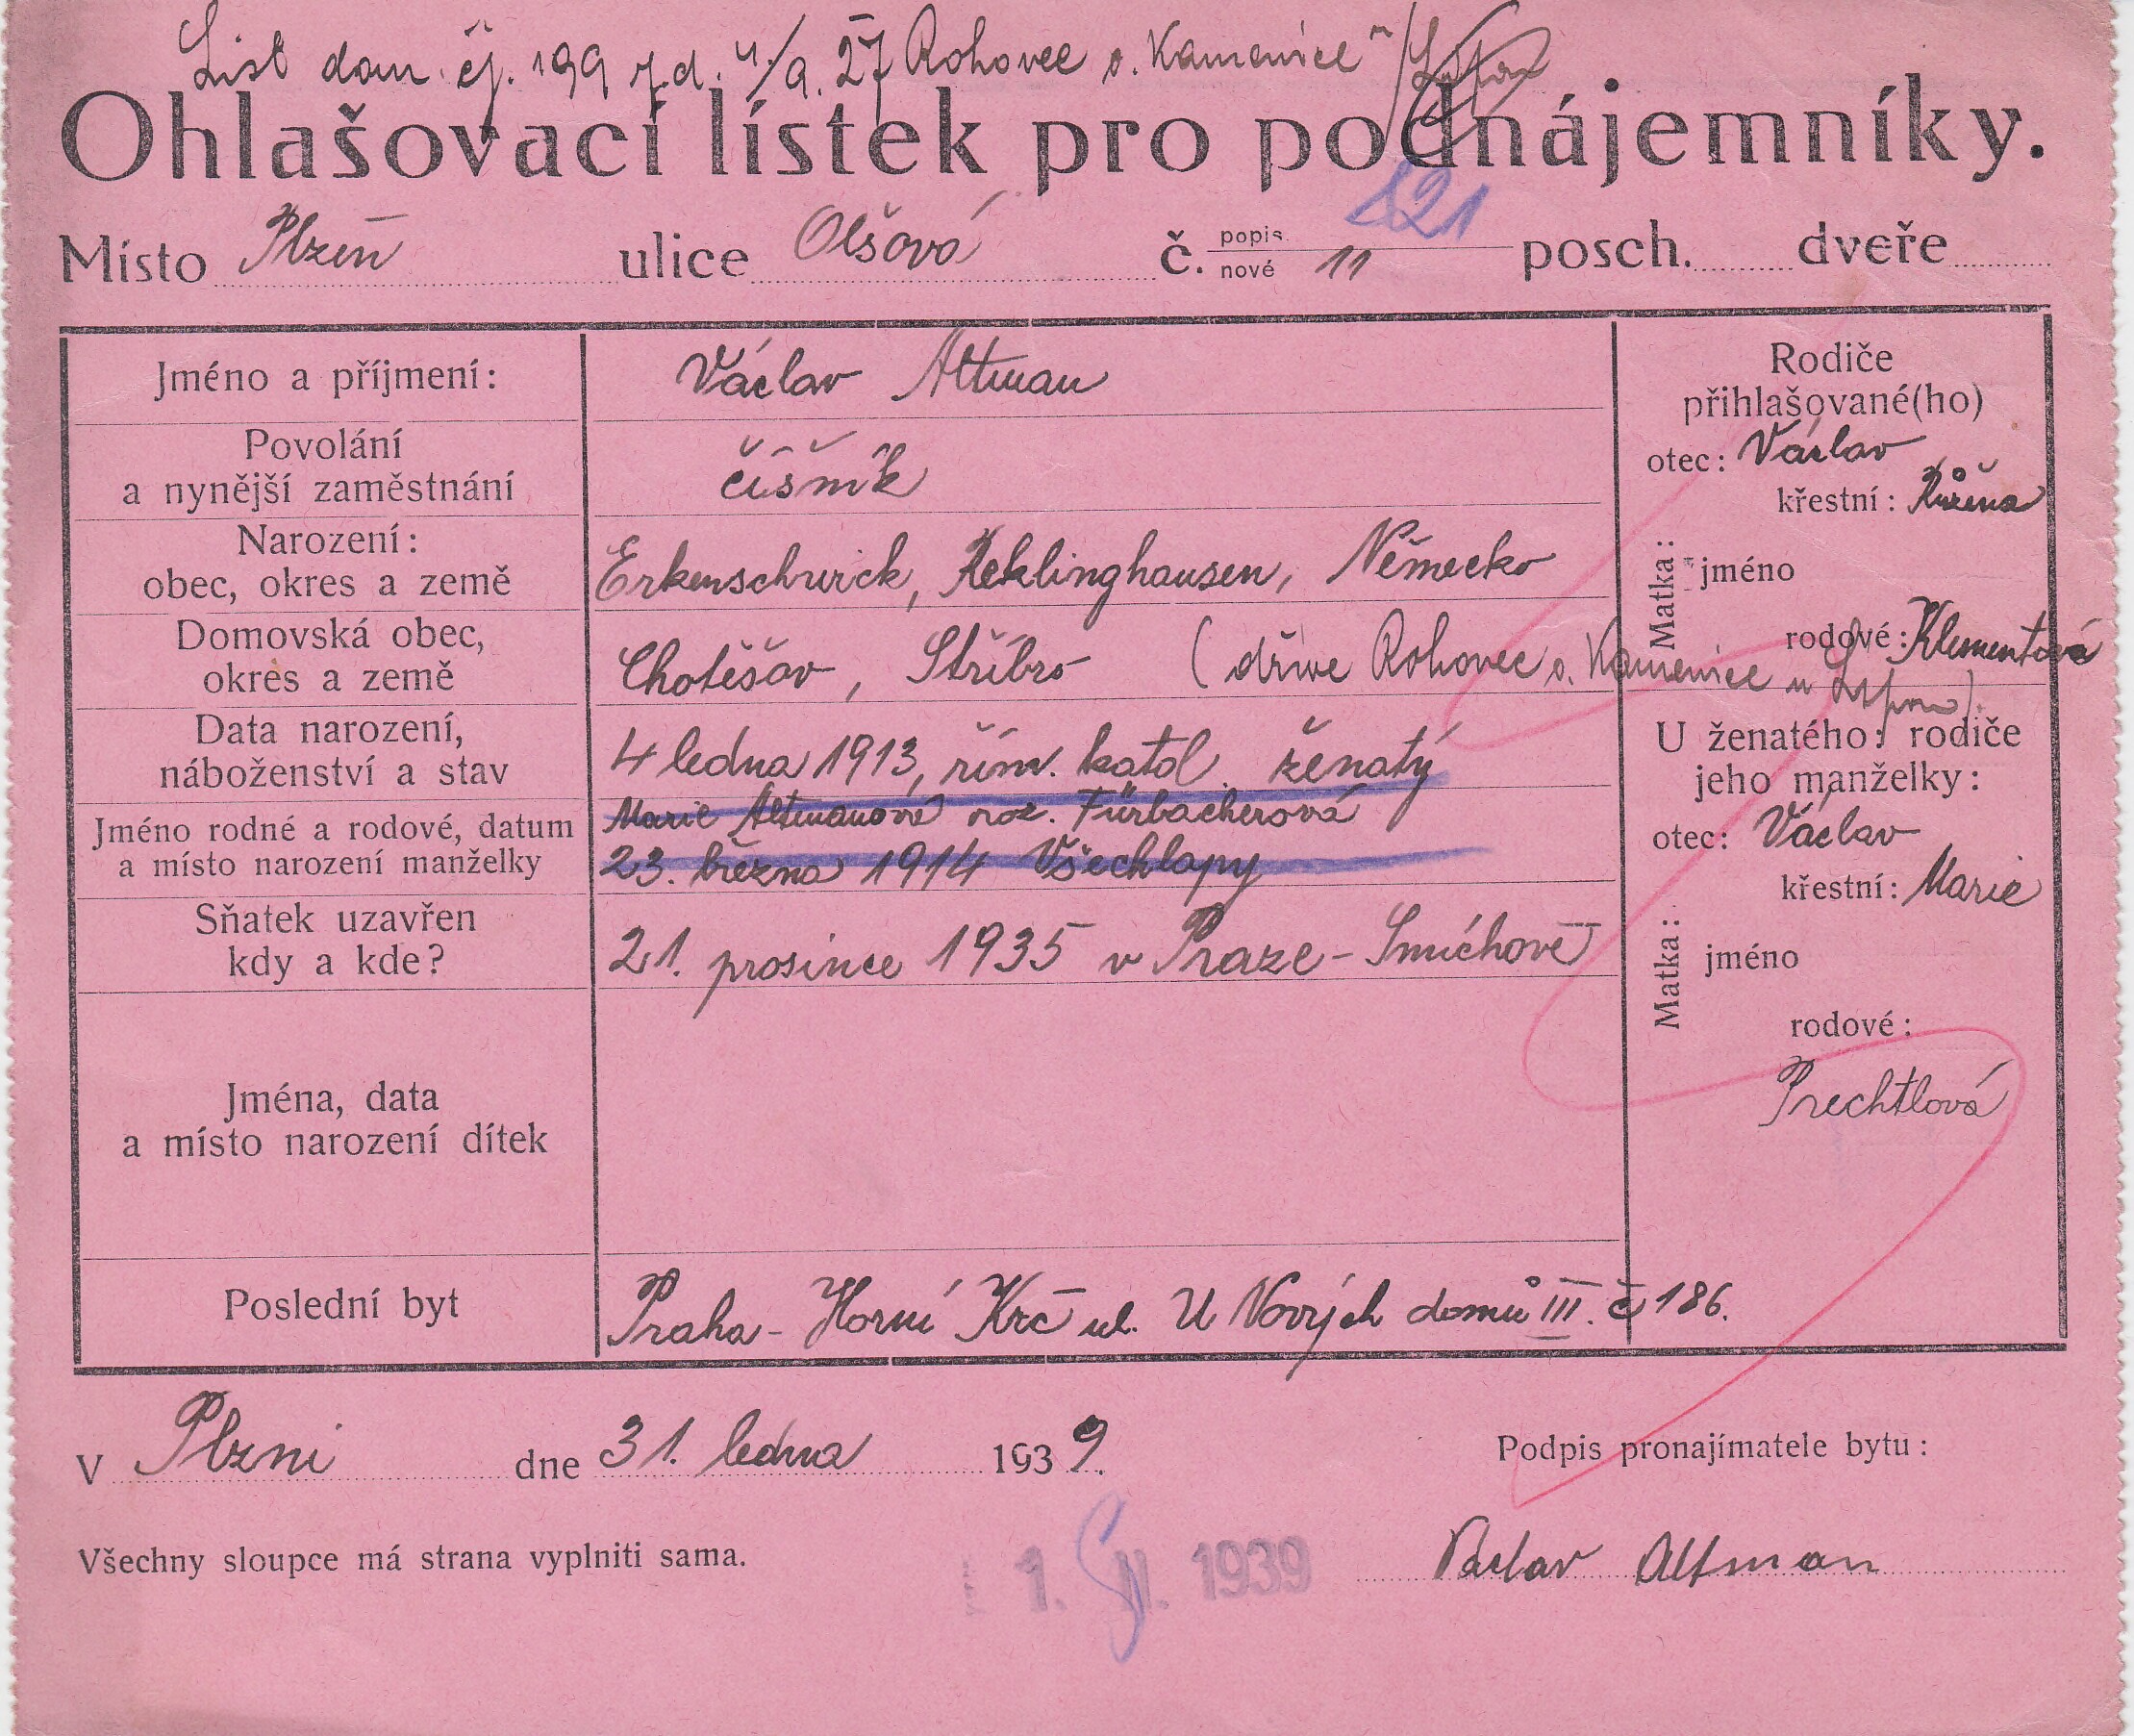 List dom. čj. 199 z d. 4/9. 27 Rohovec o. Kamenice n/
Ohlašovací lístek pro podnájemníky.
821
Místo Plzeň ulice Olšová č. popis. nové 11 posch. dveře
Jméno a příjmení: Václav Altman
Povolání
a nynější zaměstnání číšník
Narození:
obec, okres a země Erkenschwick, Reklinghausen, Německo
Domovská obec,
okres a země Chotěšov, Stříbro (dříve Rohovec o. Kamenice n
Data narození,
náboženství a stav 4 ledna 1913, řím. katol. ženatý
Jméno rodné a rodové, datum
a místo narození manželky
Marie Altmanové roz. Fürbacherová
23. března 1914 Všechlapy
Sňatek uzavřen
kdy a kde? 21. prosince 1935 v Praze - Smíchově
Jména, data
a místo narození dítek
Poslední byt Praha - Horní Krč ul. U Nových domů III. č 186.
Rodiče
přihlašované(ho)
otec: Václav
Matka:
křestní: Růžena
jméno
rodové: Klementová
U ženatého: rodiče
jeho manželky:
otec: Václav
Matka:
křestní: Marie
jméno
rodové:
Prechtlová
V Plzni dne 31. ledna 1939.
Podpis pronajímatele bytu:
Všechny sloupce má strana vyplniti sama.
1. II. 1939
Václav Altman